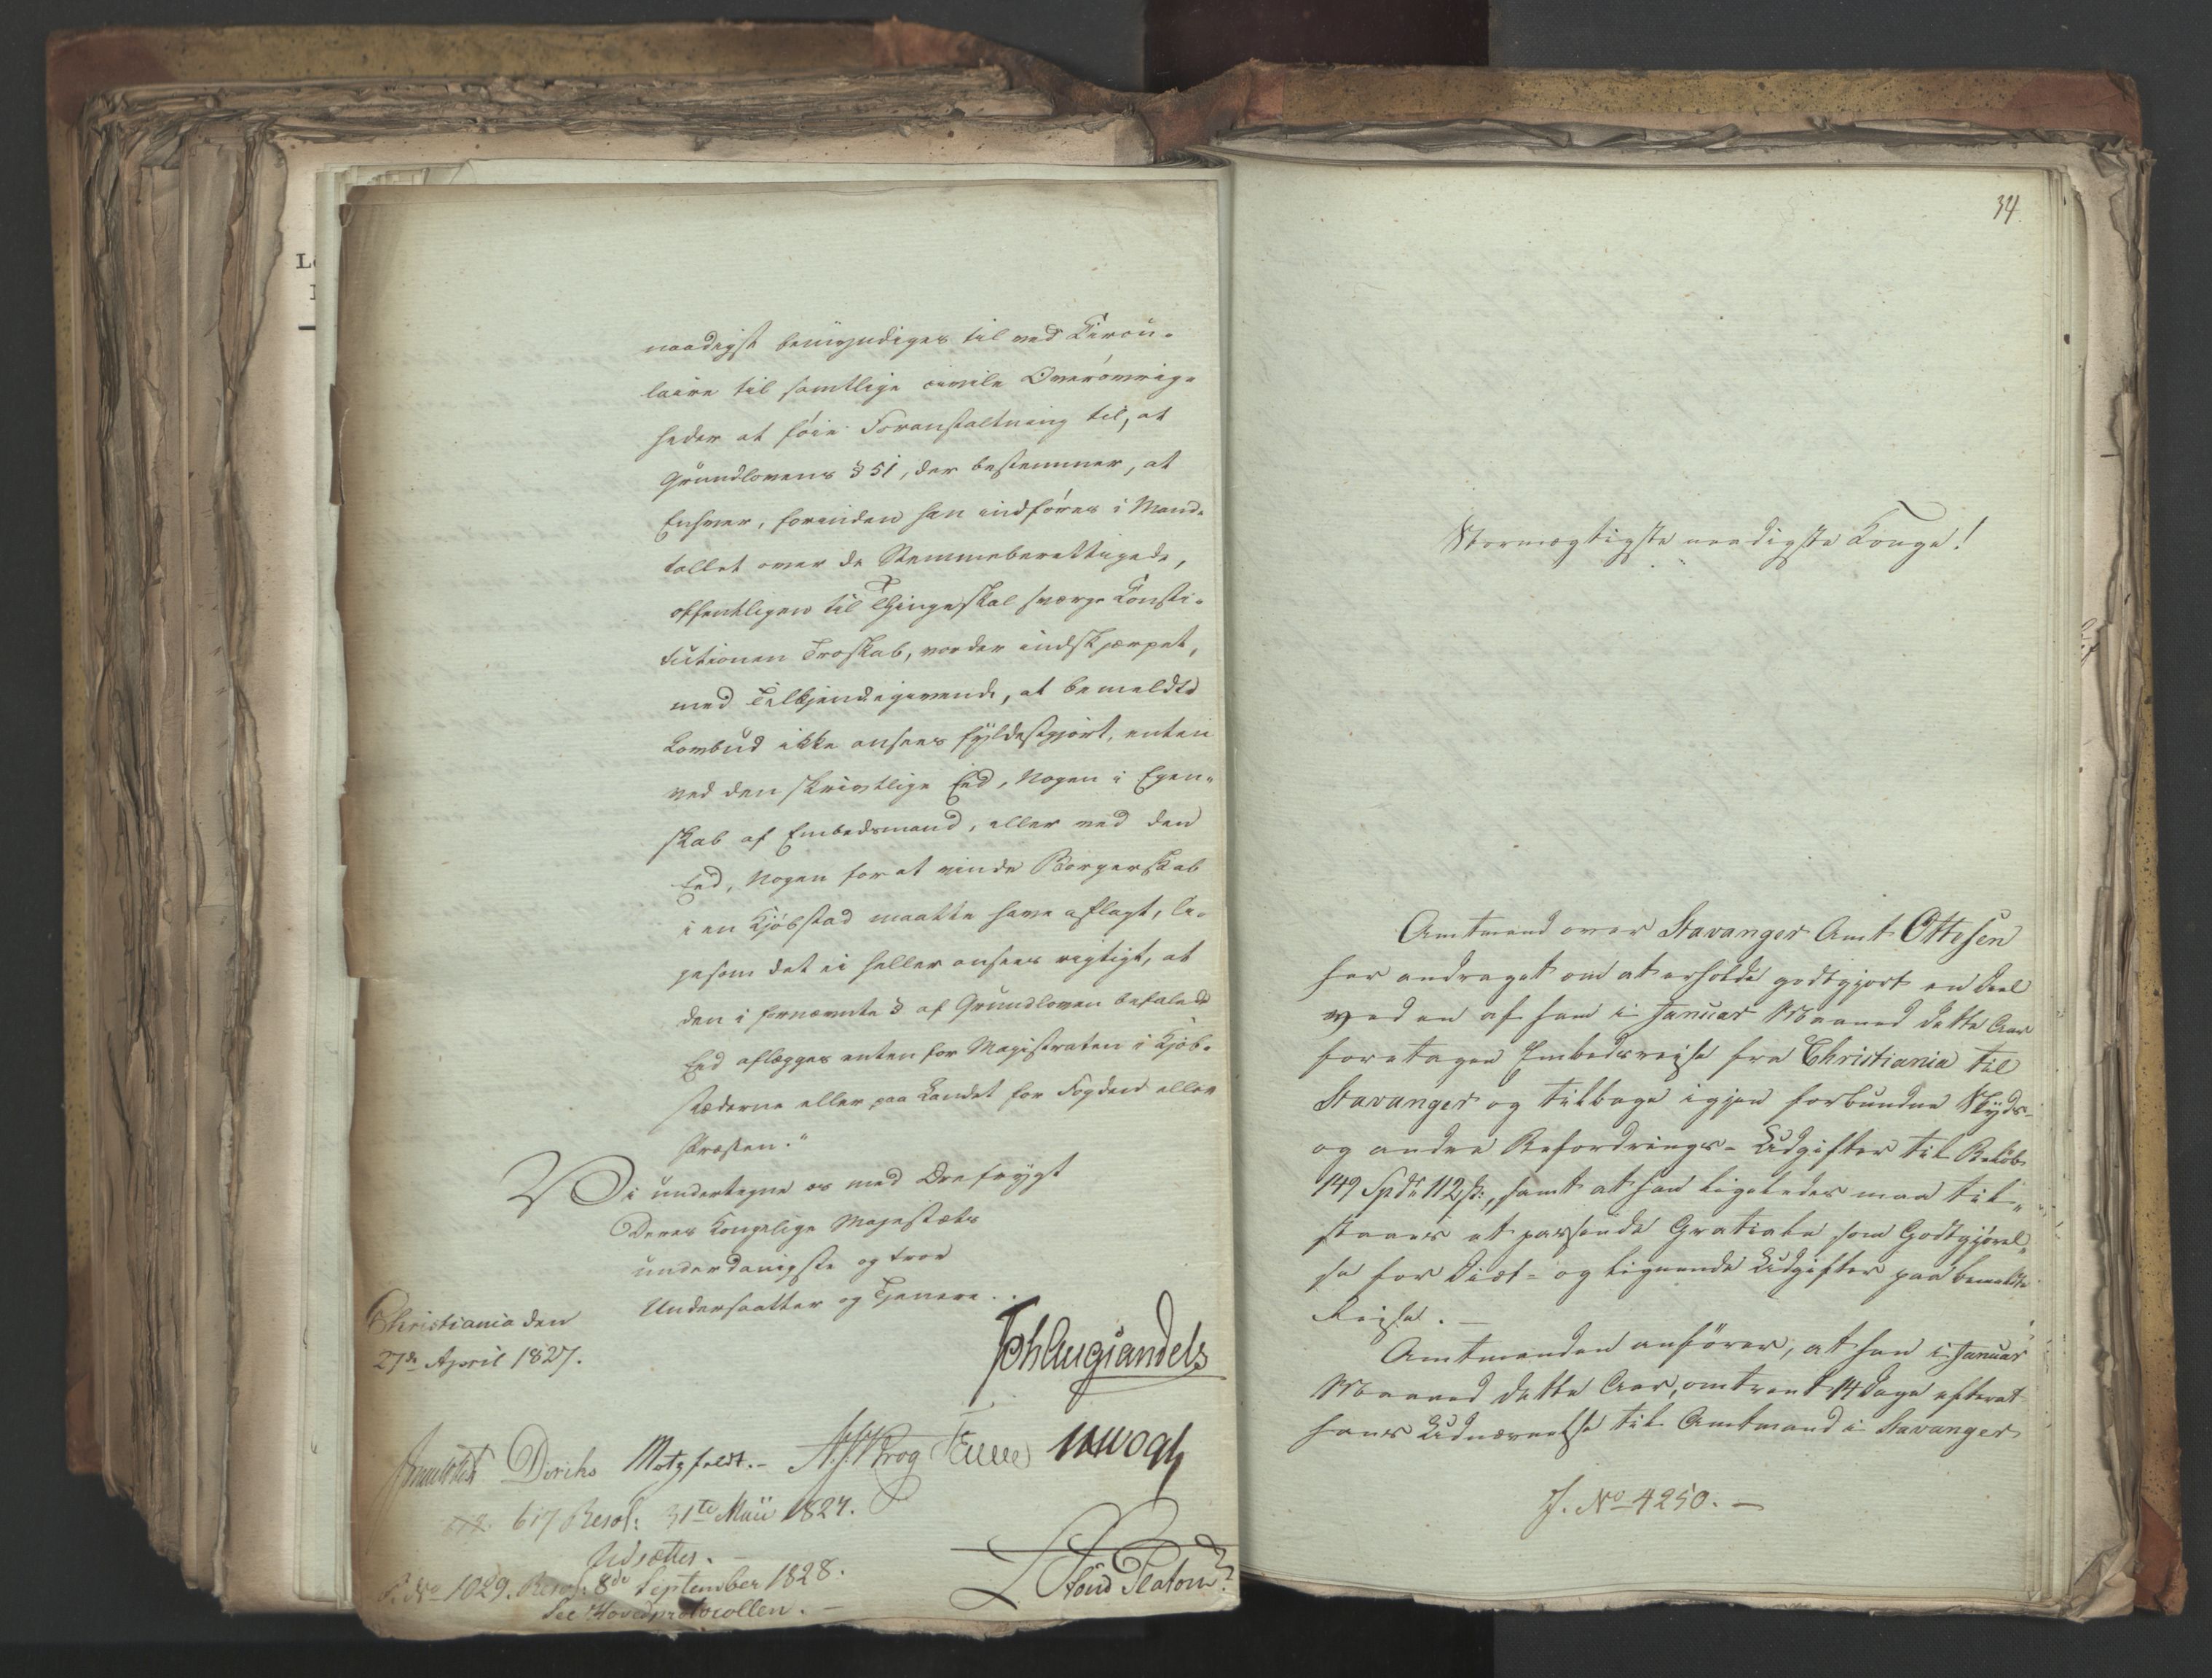 naadigst bemyndiges til ved Circu-
laire til samtlige civile Overøvrig-
heder at føie Foranstaltning til, at
Grundlovens § 51, der bestemmer, at
Enhver, forinden han indføres i Mand-
tallet over de Stemmeberettigede,
offentligen til Thinge skal sværge Consti-
tutionen Troskab, vorder indskjærpet,
med Tilkjendegivende, at bemeldte
Lovbud ikke ansees fyldestgjort, enten
ved den skriftlige Eed, Nogen i Egen-
skab af Embedsmand, eller ved den
Eed, Nogen for at vinde Borgerskab
i en Kjøbstad maatte have aflagt, li-
gesom det ei heller ansees rigtigt, at
den i fornævnte § af Grundloven befalede
Eed aflægges enten for Magistraten i Kjøb-
stæderne eller paa Landet for Fogden eller
Præsten."
Vi undertegne os med Ærefrygt
Deres Kongelige Majestæts
underdanigste og troe
Undersaatter og Tjenere.
Christiania den
27de April 1827.
Joh Aug Sandels
Diriks Motzfeldt.- Krog Wogh
617 Resol: 31te Maii 1827.
Udsættes.
P. No 1029. Resol: 8de September 1828.
See Hovedprotocollen.-
L Stoud Platou
34.
Stormægtigste naadigste Konge!
Amtmand over Stavanger Amt Ottesen
har andraget om at erholde godtgjort en Deel
ved en af ham i Januar Maaned dette Aar
foretagen Embedsreise fra Christiania til
Stavanger og tilbage igjen forbundne Skyds-
og andre Befordrings-Udgifter til Beløb
149 Spdr 112 s:, samt at han ligeledes maa til-
staaes et passende Gratiale som Godtgjørel-
se for Diæt- og lignende Udgifter paa bemeldte
Reise.-
Amtmanden anfører, at han i Januar
Maaned dette Aar, omtrent 14 Dage efterat
hans Udnævnelse til Amtmand i Stavanger
J. No 4250.-